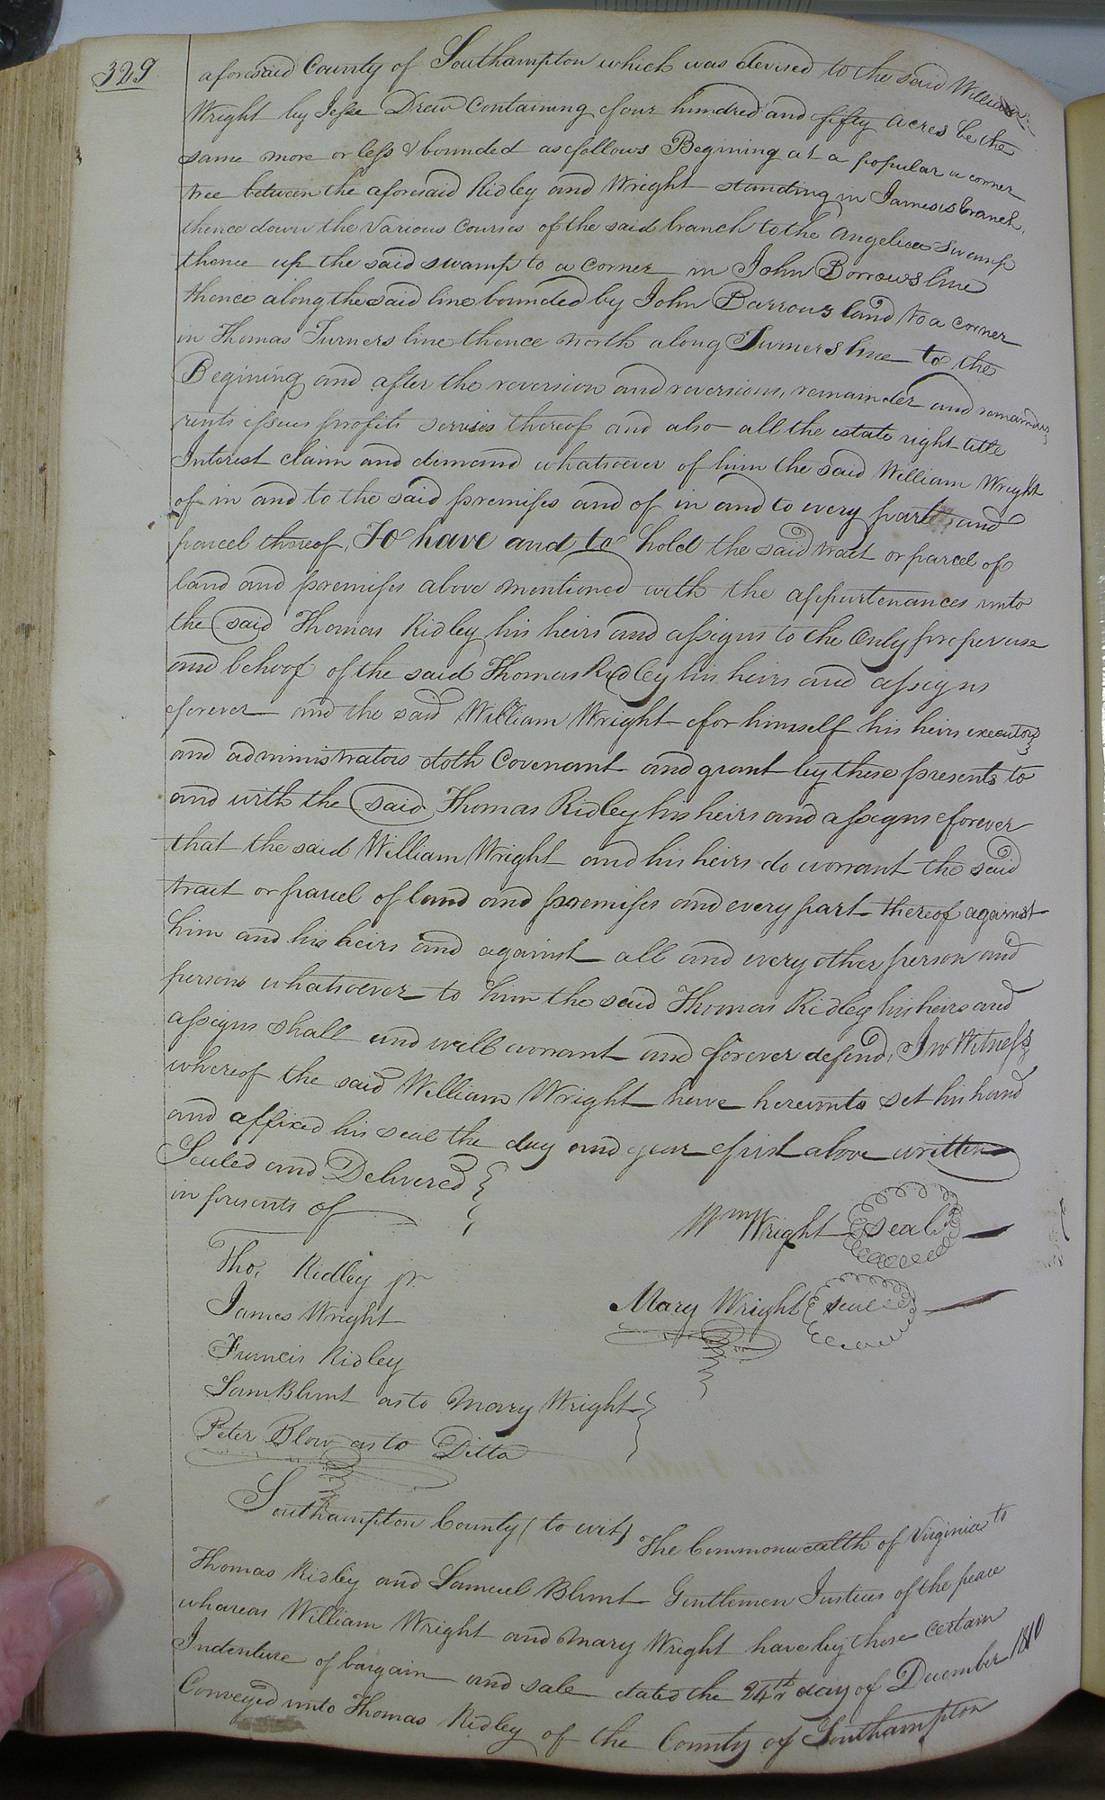 329
aforesaid County of Southampton which was devised to the said William
Wright by Jesse Drew Containing four hundred and fifty acres be the
same more or less & bounded as follows Begining at a popular a corner
tree between the aforesaid Ridley and Wright standing in Jameses branch,
thence down the Various Courses of the said branch to the Angelica Swamp
thence up the said swamp to a corner in John Borrows line
thence along the said line bounded by John Barrows land to a corner
in Thomas Turners line thence North along Turners line to the
Begining and after the reversion and reversions, remainder and remainders
rents issues profits servises thereof and also all the estate right title
Interest claim and demand whatsoever of him the said William Wright
of in and to the said premises and of in and to every part and
parcel thereof, To have and to hold the said tract or parcel of
land and premises above mentioned with the appurtenances unto
the said Thomas Ridley his heirs and assigns to the Only proper use
and behoof of the said Thomas Ridley his heirs and assigns
forever and the said William Wright for himself his heirs executors
and administrators doth Covenant and grant by these presents to
and with the said Thomas Ridley his heirs and assigns forever
that the said William Wright and his heirs do warrant the said
tract or parcel of land and premises and every part thereof against
him and his heirs and against all and every other person and
persons whatsoever to him the said Thomas Ridley his heirs and
assigns shall and will warrant and forever defend, In Witness
whereof the said William Wright have hereunto set his hand
and affixed his seal the day and year first above written
Sealed and Delivered
in presents of
Wm Wright seal
Tho. Ridley jr.
Mary Wright seal
James Wright
Francis Ridley
Sam Blunt as to Marry Wright
Peter Blow as to Ditto
Southampton County (to wit) The Commonwealth of Virginia to
Thomas Ridley and Samuel Blunt Gentlemen Justices of the peace
whareas William Wright and Mary Wright have by those certain
Indenture of bargain and sale dated the 24th day of December 1810
Conveyed unto Thomas Ridley of the County of Southampton